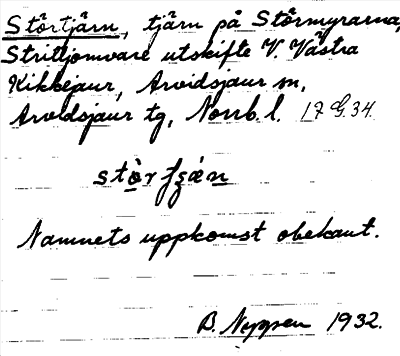 Störtjärn, tjärn på Störmyrarna,
Strittjomvare utskifte V. Västra
Kikkejaur, Arvidsjaur sn,
Arvidsjaur tg, Norrb. l. 17 G. 34
Namnets uppkomst obekant.
B. Nyssen 1932.